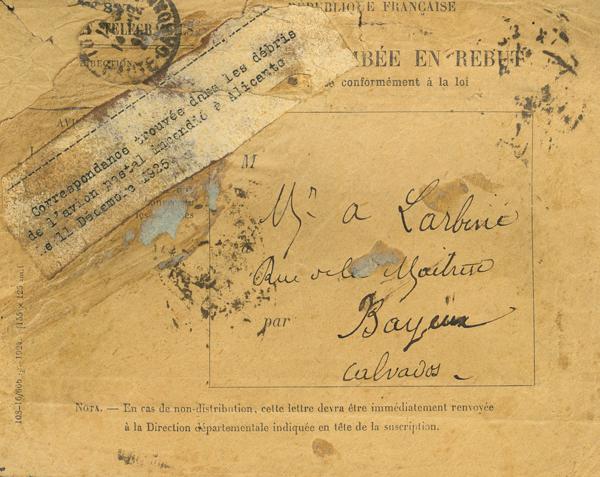 RÉPUBLIQUE FRANÇAISE
TÉLÉGR
DIRECTION
BÉE EN REBUT
conformément à la loi
Correspondance trouvée dans les débris
de l'avion postal incendié à Alicante
le 11 Décembre 1925.
M
Mr a Larbine
Rue de la Maitrise
par
Bayeux
Calvados
NOTA. — En cas de non-distribution, cette lettre devra être immédiatement renvoyée
à la Direction départementale indiquée en tête de la suscription.